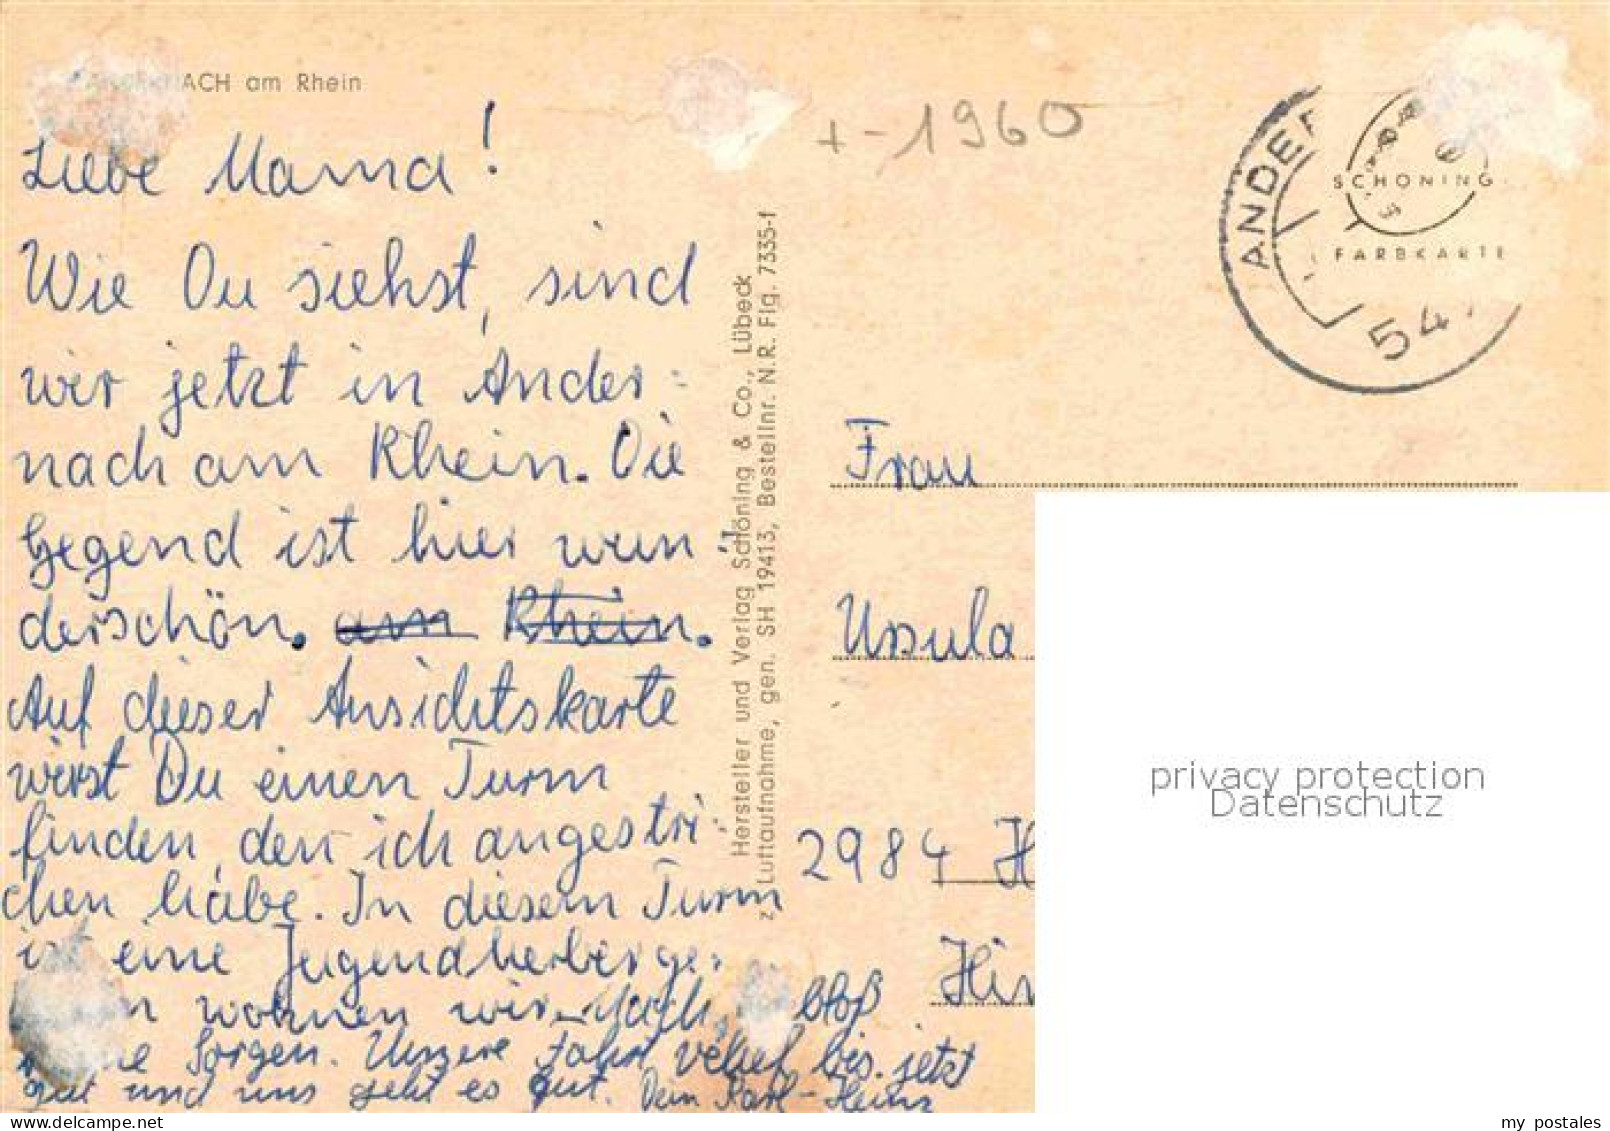 ACH am Rhein
Liebe Mama!
Wie Du siehst, sind
wir jetzt in Ander=
nach am Rhein. Die
Gegend ist hier wun"
derschön. am Rhein.
Auf dieser Ansichtskarte
wirst Du einen Turm
finden, den ich angestri=
chen habe. In diesem Turm
ist eine Jugendherberge.
wohnen wir. Mach bloß
Sorgen. Unsere Fahrt verlief bis jetzt
gut und uns geht es gut. Dein Karl-Heinz
Hersteller und Verlag Schöning & Co., Lübeck
Luftaufnahme, gen. SH 19413, Bestellnr. N.R. Flg. 7335-f
+-1960
ANDER
SCHÖNING
FARBKARTE
54
Frau
Ursula
2984 H
Hin
privacy protection
Datenschutz
my postales